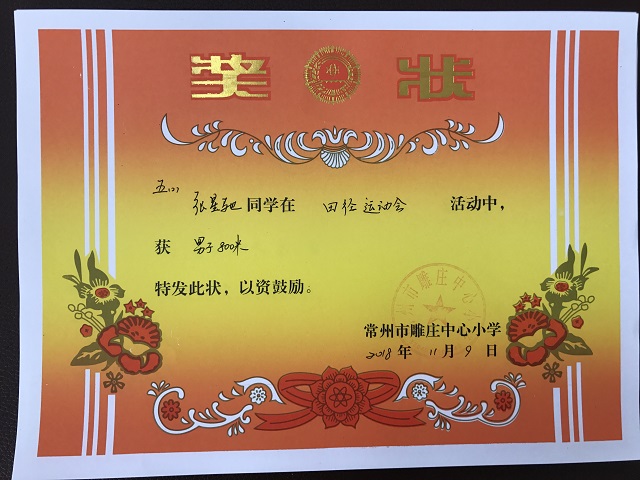 奖 状
五(2)
张星驰 同学在 田径运动会 活动中，
获 男子800米
特发此状，以资鼓励。
常州市雕庄中心小学
2018 年 11 月 9 日